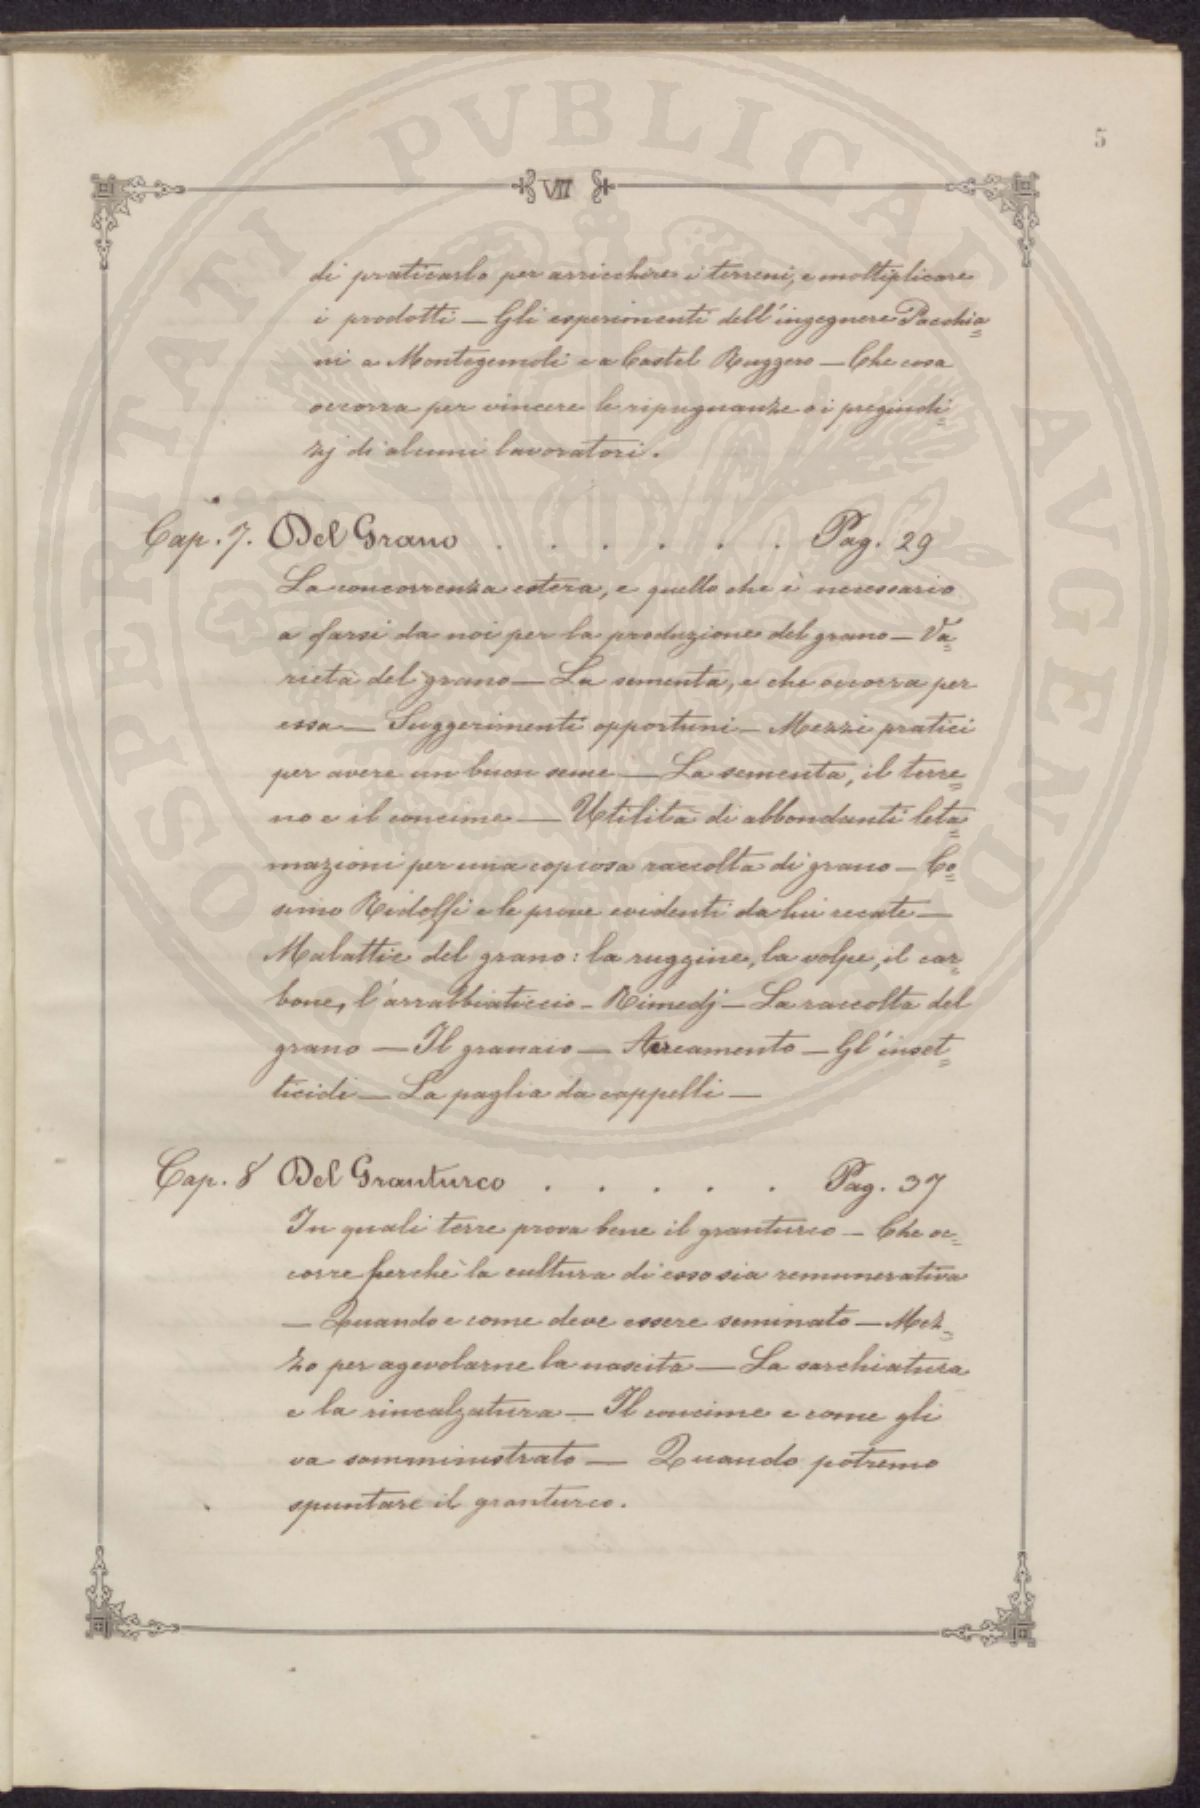 5
VII
di praticarlo per arricchire i terreni, e moltiplicare
i prodotti — Gli esperimenti dell'ingegnere Pacchia=
ni a Montegemoli e a Castel Ruggero — Che cosa
occorra per vincere le ripugnanze o i pregiudi=
zj di alcuni lavoratori.
Cap. 7. Del Grano . . . . . . Pag. 29
La concorrenza estera, e quello che è necessario
a farsi da noi per la produzione del grano — Va=
rietà del grano — La sementa, e che occorra per
essa — Suggerimenti opportuni — Mezzi pratici
per avere un buon seme — La sementa, il terre=
no e il concime — Utilità di abbondanti leta=
mazioni per una copiosa raccolta di grano — Co=
simo Ridolfi e le prove evidenti da lui recate —
Malattie del grano: la ruggine, la volpe, il car=
bone, l'arrabbiaticcio — Rimedj — La raccolta del
grano — Il granaio — Aereamento — Gl'inset=
ticidi — La paglia da cappelli —
Cap. 8 Del Granturco . . . . . Pag. 37
In quali terre prova bene il granturco — Che oc=
corre perchè la cultura di esso sia remunerativa
— Quando e come deve essere seminato — Mez=
zo per agevolarne la nascita — La sarchiatura
e la rincalzatura — Il concime e come gli
va somministrato — Quando potremo
spuntare il granturco.
PROSPERITATI PVBLICAE AVGENDAE